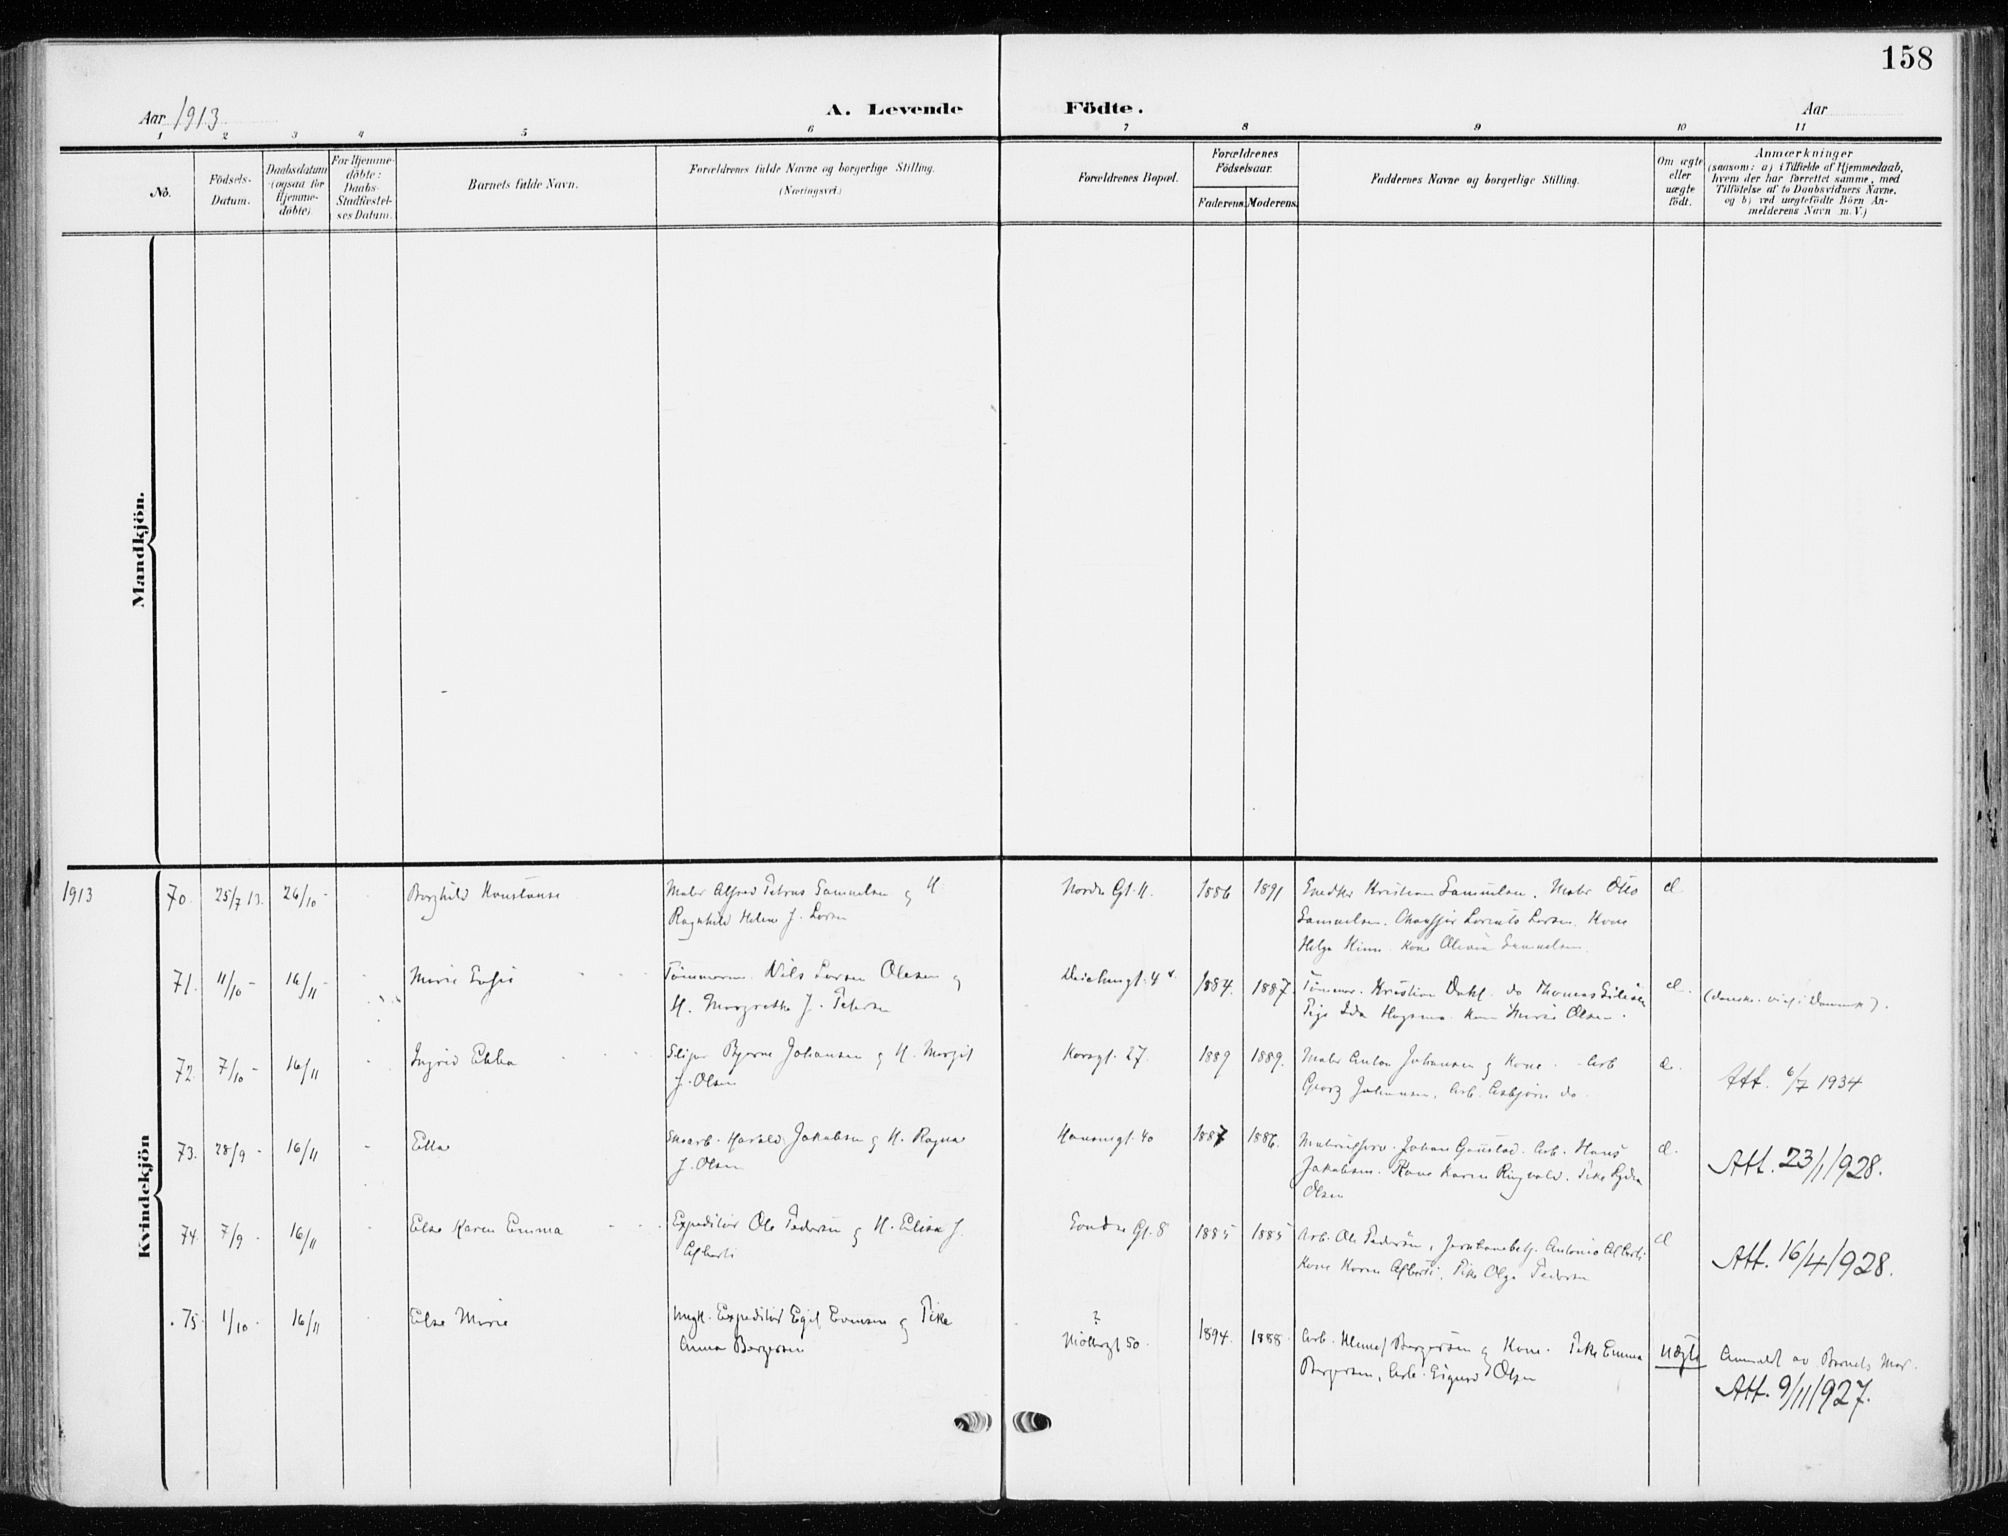 158
Aar 1913
A. Levende Födte.
Aar
1 2 3 4 5 6 7 8 9 10 11
No.
Födsels-
Datum.
Daabsdatum
(ogsaa for
Hjemme-
döbte)
For Hjemme-
döbte:
Daabs-
Stadfæstel-
ses Datum.
Barnets fulde Navn.
Forældrenes fulde Navne og borgerlige Stilling.
(Næringsvei.)
Forældrenes Bopæl.
Forældrenes
Födselsaar.
Faderens. Moderens.
Faddernes Navne og borgerlige Stilling.
Om ægte
eller
uægte
födt.
Anmærkninger
(saasom: a) i Tilfælde af Hjemmedaab,
hvem der har forrettet samme, med
Tilföielse af to Daabsvidners Navne,
og b) ved uægtefödte Börn An-
melderens Navn m. V.)
Mandkjön.
Kvindekjön
1913 70. 25/7 13. 26/10 - Borghild Konstanse
Maler Alfred Petrus Samuelsen og H.
Ragnhild Helene f. Larsen
Nordre Gt. 11.
1886 1891
Kristian Samuelsen. Maler Otto
Samuelsen. Lorents Larsen. Kone
Helga Kone Olivia Samuelsen.
71. 11/10 - 16/11 - Marie
Tömmerm. Nils Larsen Olesen og
H. Margrethe f. Petersen
1884. 1887.
Tömmer. Kristian Dahl. do Thomas
Pige Ida Kone Marie Olsen.
72. 7/10 - 16/11 Ingrid Ebba
Sliper Bjarne Johansen og H. Margit
f. Olsen
Korsgt. 27.
1889 1889.
Maler Anton Johansen og Kone. Arb
Georg Johansen, Arb. Asbjörn do.
Att. 6/7 1934
73. 28/9 - 16/11 Ella
Skoarb. Harald Jakobsen og H. Ragna
f. Olsen
Hansengt. 40
1887 1886.
Johan Gaustad. Arb. Hans
Jakobsen. Kone Karen Ringvold. Pike Lydia
Olsen
Att. 23/1 1928.
74. 7/9 - 16/11 Else Karen Emma
Expeditör Ole Pedersen og H. Elisa f.
Alberti
Söndre Gt. 8
1885 1885
Arb. Ole Pedersen, Jernbanebetj. Antonio Alberti
Kone Karen Alberti, Pike Olga Pedersen
Att. 16/4 1928.
75. 1/10 - 16/11 Else Marie
Ungk. Expeditör Egil Evensen og Pike
Anna Bergersen
?
Möllergt 50.
1894. 1888
Arb. Bergersen og Kone. Pike Emma
Bergersen, Arb. Sigurd Olsen
uægte
Anmeldt av Barnets Mor.
Att. 9/11 1927.